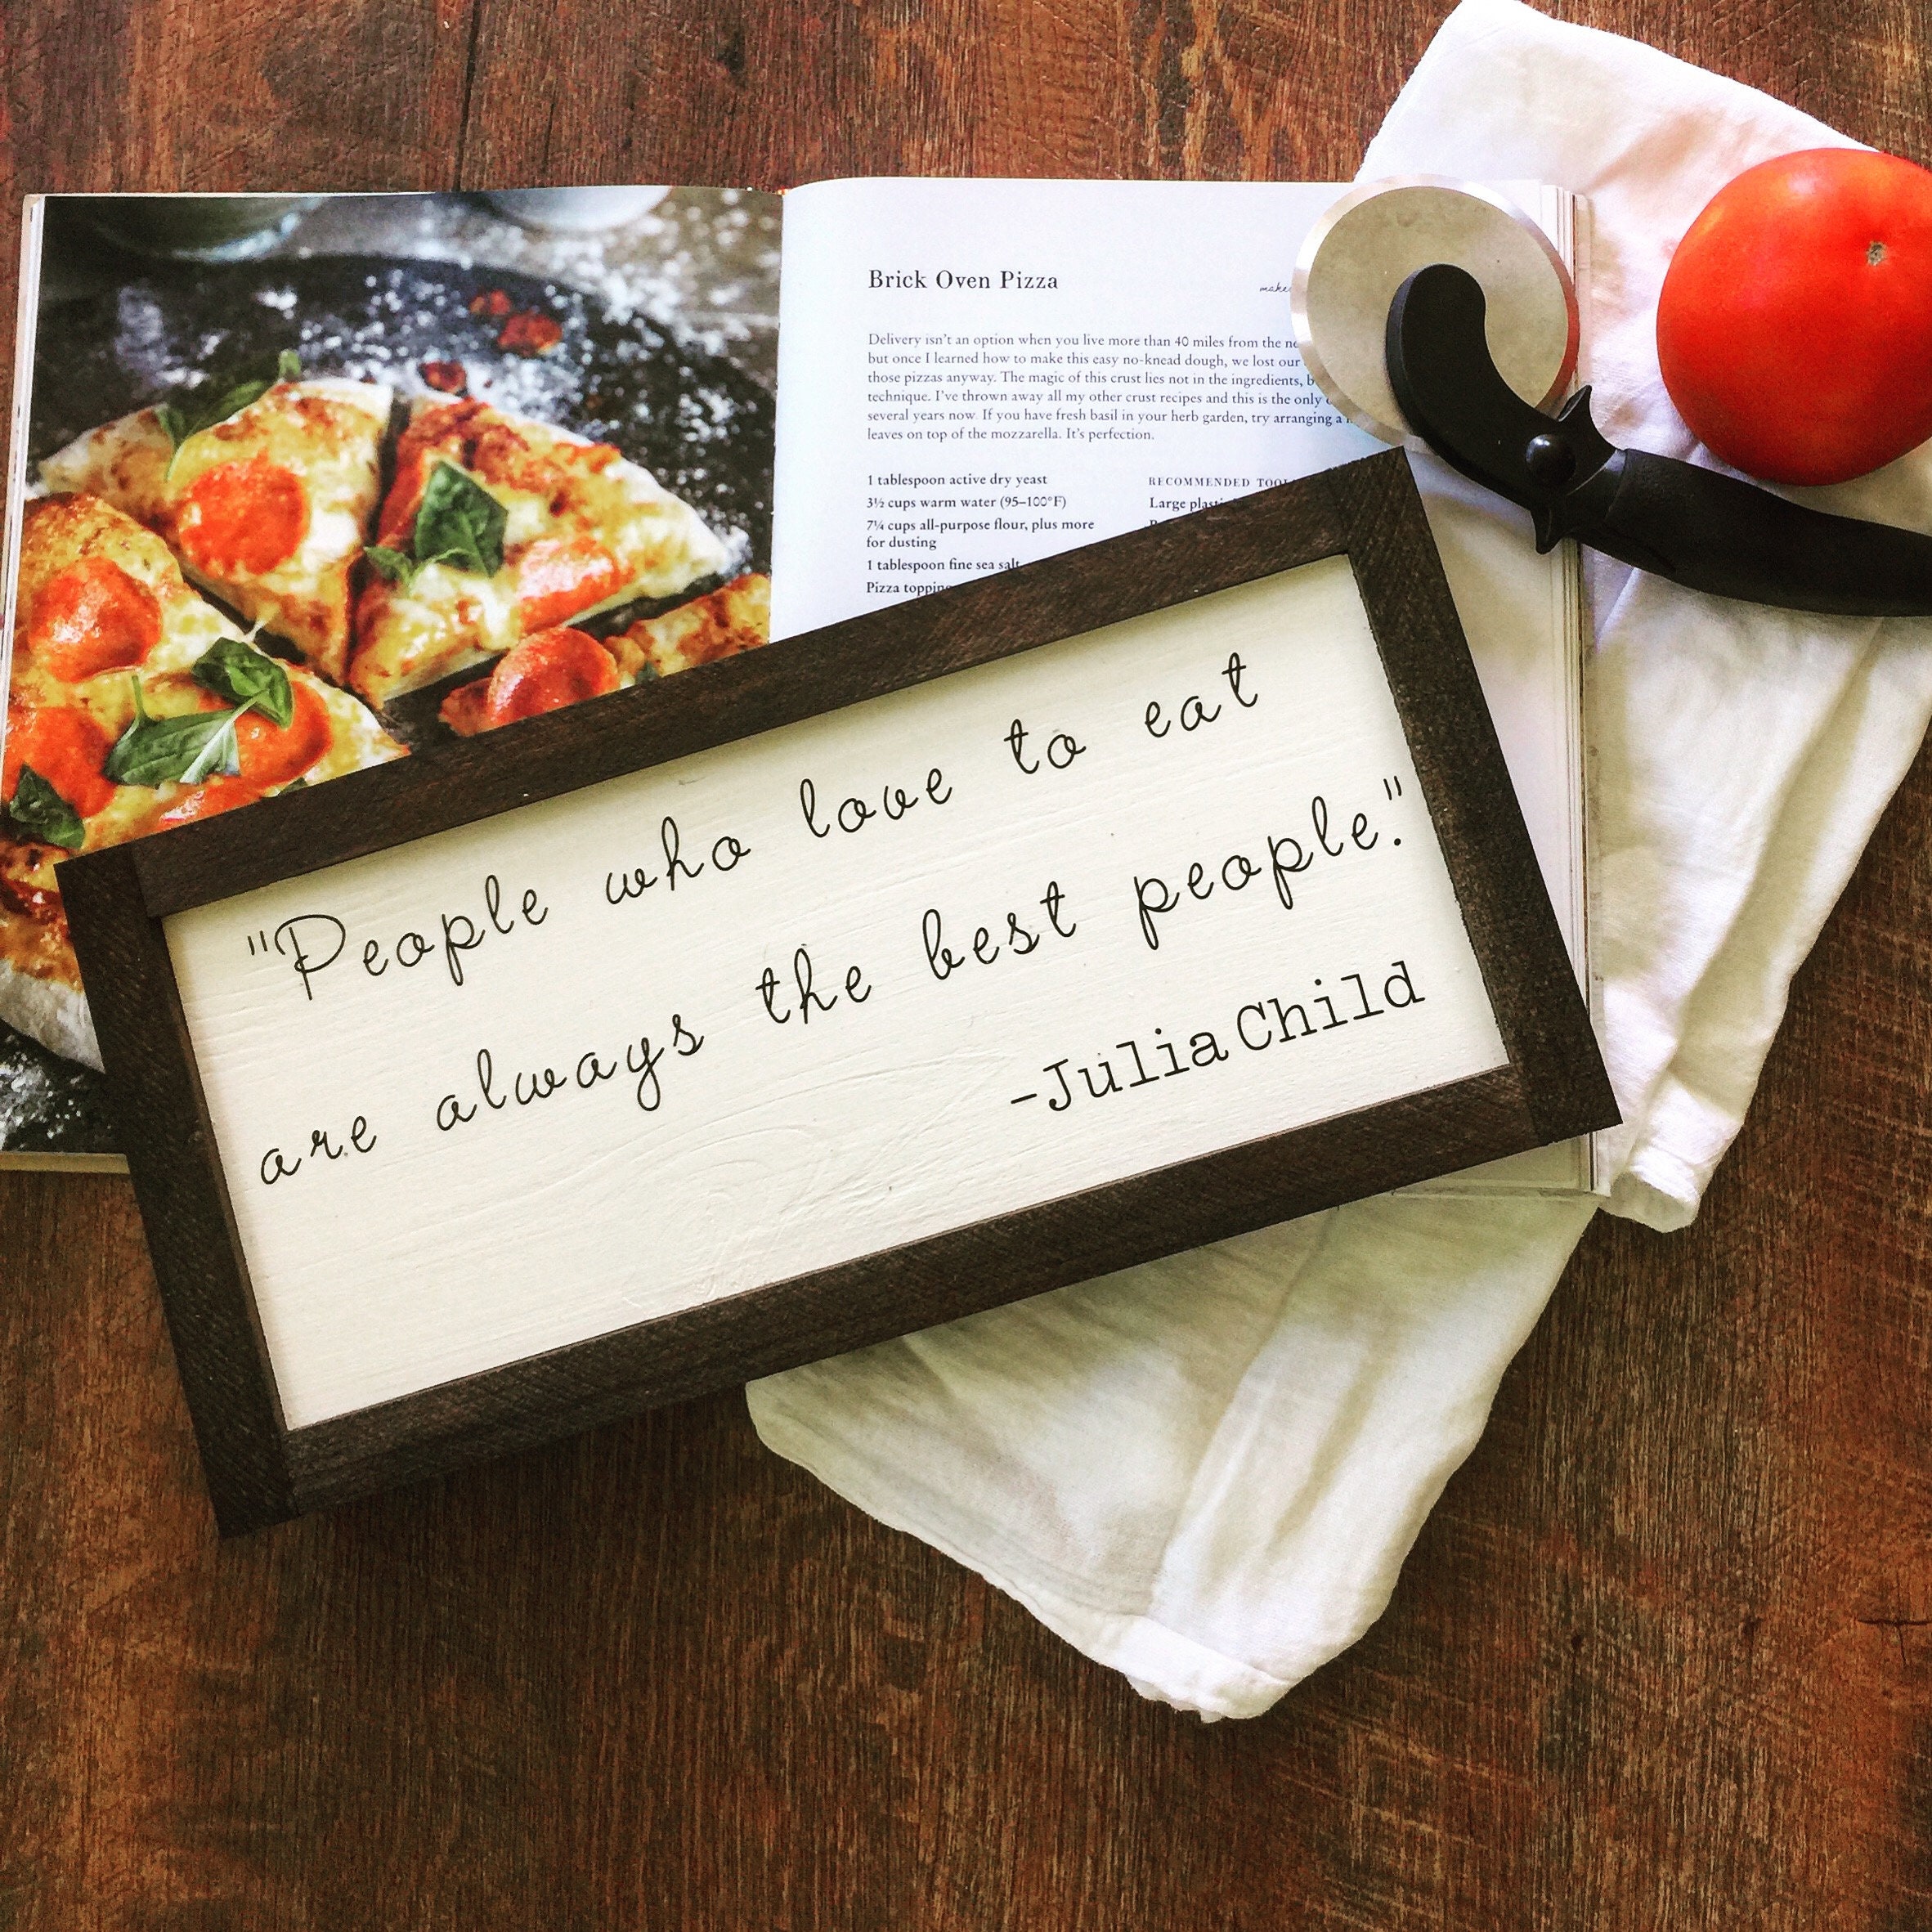 Brick Oven Pizza
Delivery isn't an option when you live more than 40 miles from the
but once I learned how to make this easy no-knead dough, we lost our
those pizzas anyway. The magic of this crust lies not in the ingredients,
technique. I've thrown away all my other crust recipes and this is the only
several years now. If you have fresh basil in your herb garden, try arranging a
leaves on top of the mozzarella. It's perfection.
1 tablespoon active dry yeast
3½ cups warm water (95–100°F)
7¼ cups all-purpose flour, plus more
for dusting
1 tablespoon fine sea salt
Pizza
RECOMMENDED
Large
"People who love to eat
are always the best people."
-Julia Child